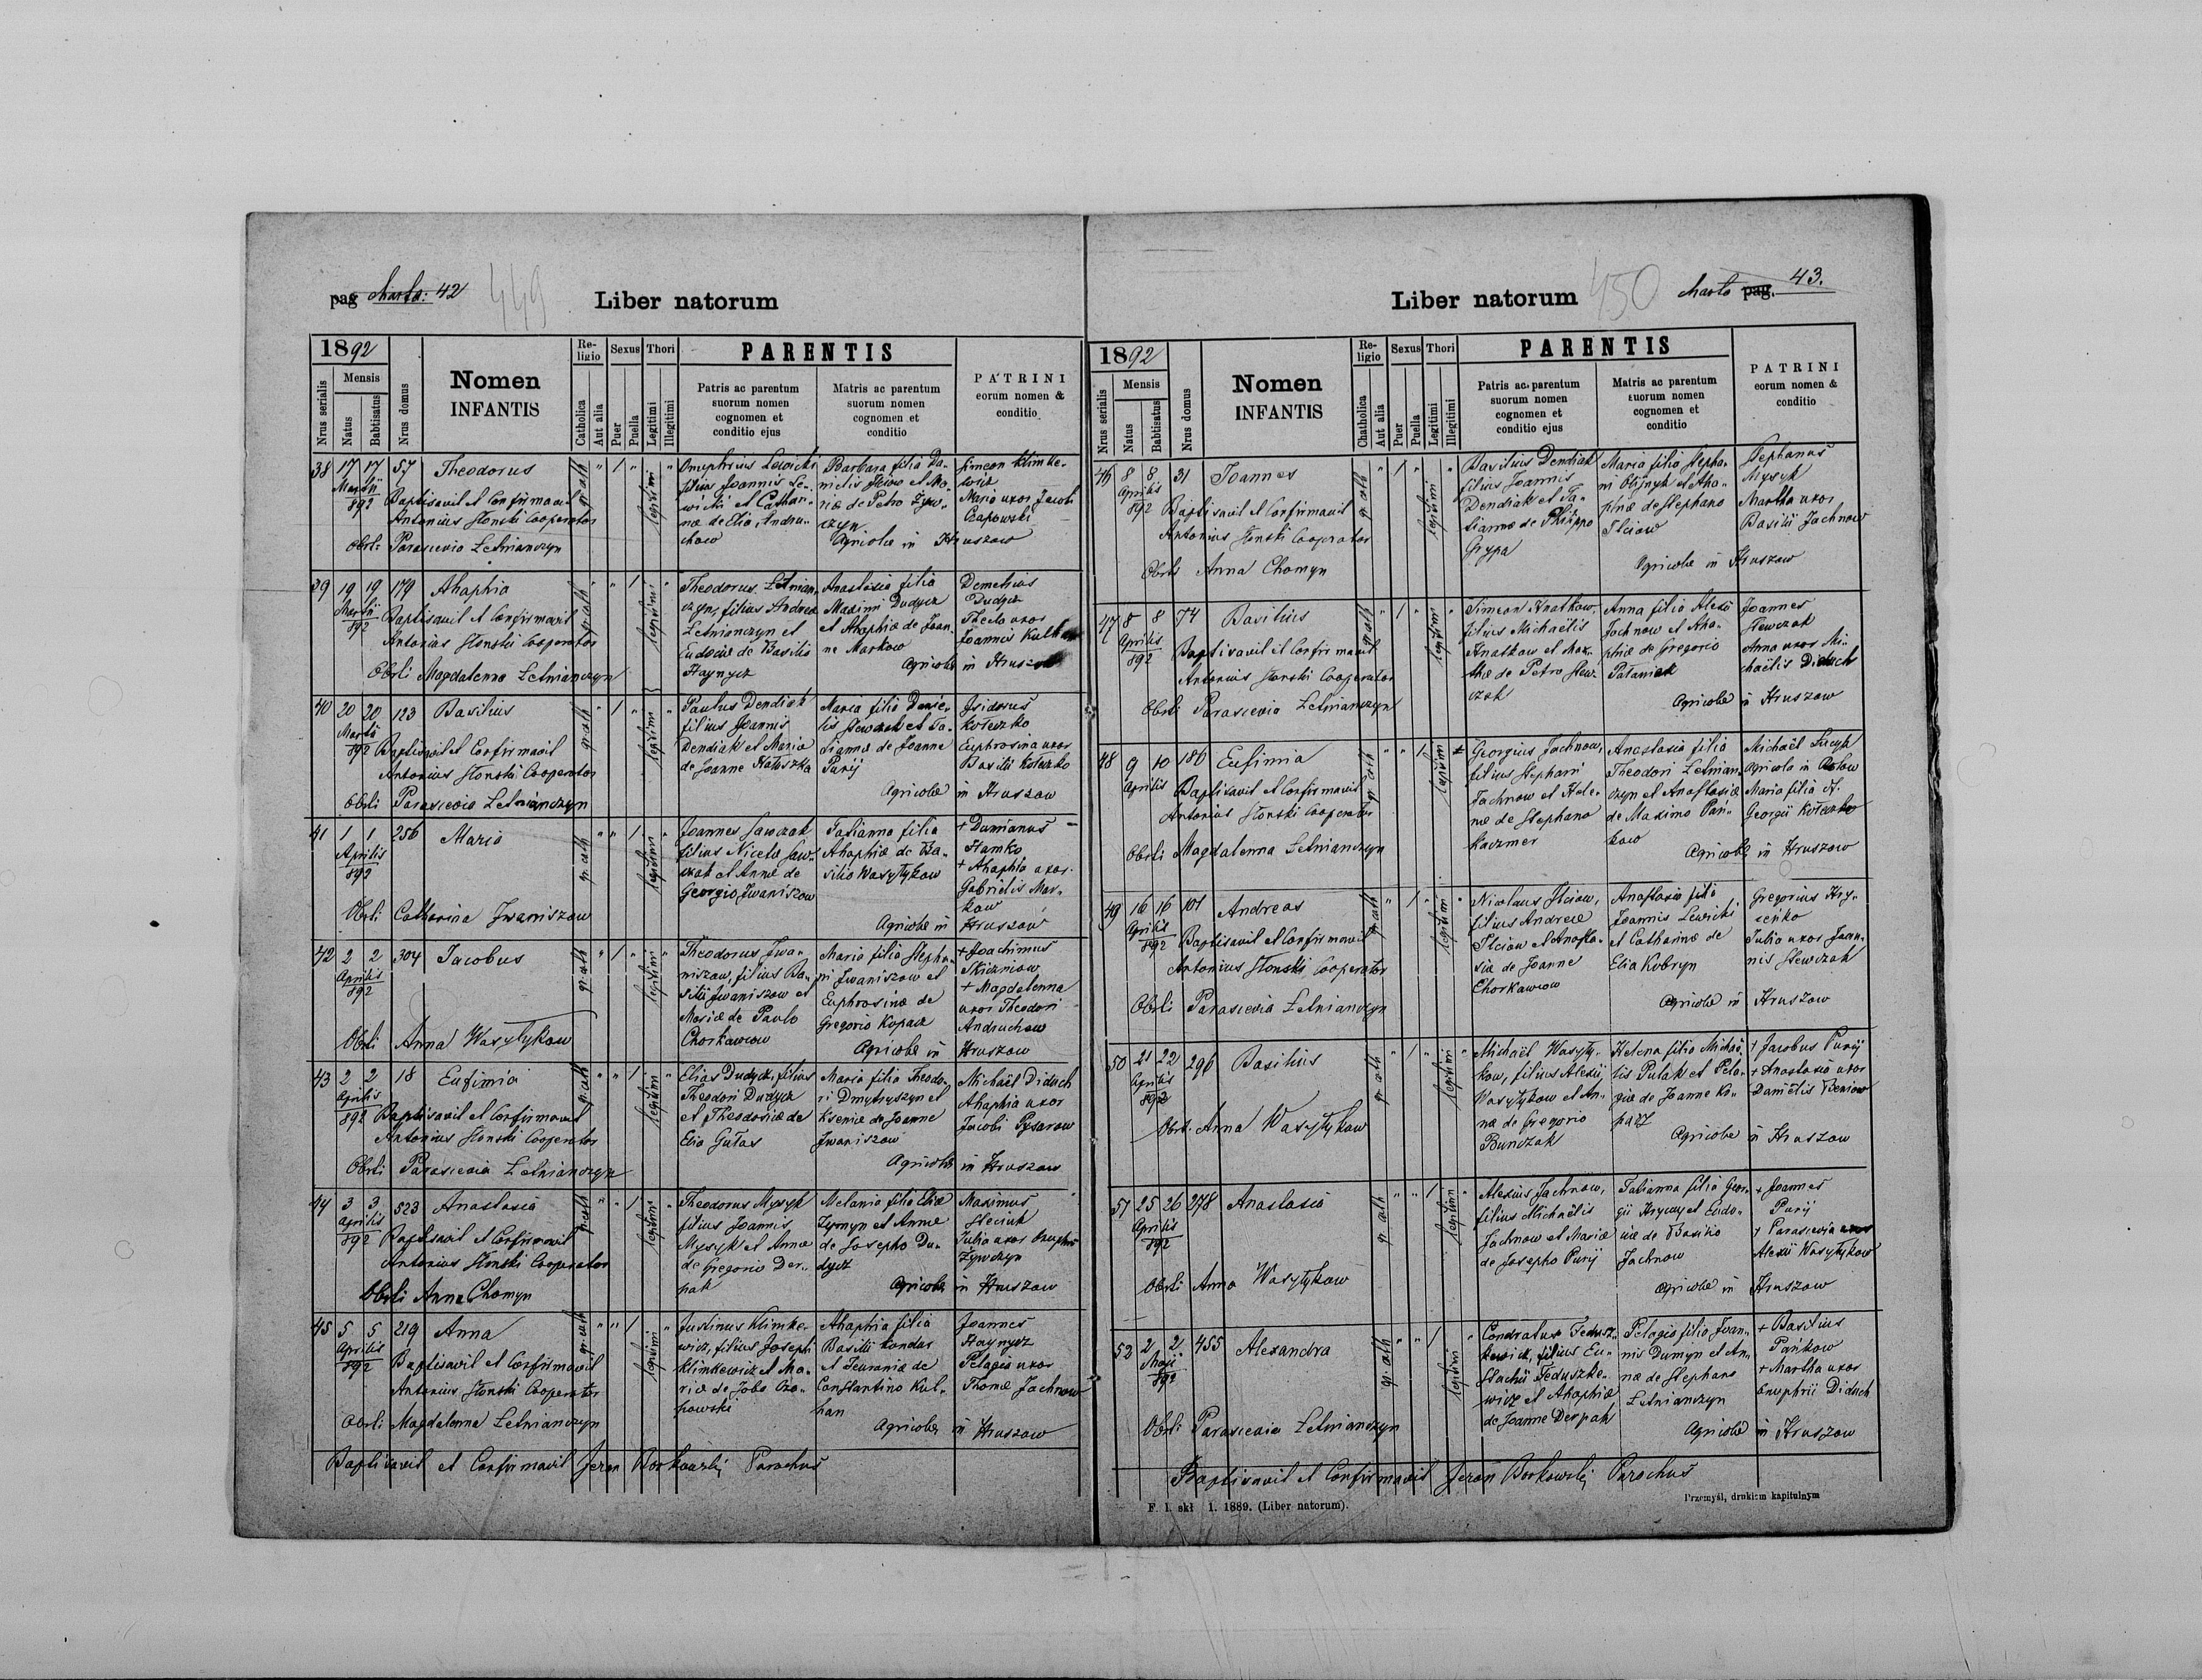 pag Charta: 42
449
Liber natorum
1892
Nrus serialis
Mensis
Natus
Babtisatus
Nrus domus
Nomen
INFANTIS
Re-
ligio
Catholica
Aut alia
Sexus
Puer
Puella
Thori
Legitimi
Illegitimi
PARENTIS
Patris ac parentum
suorum nomen
cognomen et
conditio ejus
Matris ac parentum
suorum nomen
cognomen et
conditio
PATRINI
eorum nomen &
conditio
38 17 17 57 Theodorus
Martii
892
Baptisavit et Confirmavit
Antonius Stonski Cooperator
Obsti Parascevia Letnianczyn
gr. cath
1
legitimi
Onuphrius Lewicki
filius Joannis Le-
wicki et Cathari-
næ de Elia Andru-
chow
Barbara filia Da-
nielis Ilciow et Ma-
riæ de Petro Zyw-
czyn
Agricolæ in Hruszow
Simeon Klimke-
wicz
Maria uxor Jacobi
Czapowski
39 19 19 179 Ahaphia
Martii
892
Baptisavit et Confirmavit
Antonius Stonski Cooperator
Obsti Magdalenna Letnianczyn
gr. cath
1
legitimi
Theodorus Letnian-
czyn, filius Andreæ
Letnianczyn et
Eudociæ de Basilio
Haynycz
Anastasia filia
Maximi Dudycz
et Ahaphiæ de Joan-
ne Markow
Agricolæ in Hruszow
Demetrius
Dudycz
Thecla uxor
Joannis Kulhan
40 20 20 123 Basilius
Martii
892
Baptisavit et Confirmavit
Antonius Stonski Cooperator
Obsti Parascevia Letnianczyn
gr. cath
1
legitimi
Paulus Dendiak
filius Joannis
Dendiak et Mariæ
de Joanne Hałuszka
Maria filia Danie-
lis Slewczak et Ta-
tiannæ de Joanne
Purij
Agricolæ in Hruszow
Isidorus
Koteczko
Euphrosina uxor
Basilii Koteczko
41 1 1 256 Maria
Aprilis
892
Obsti Catharina Iwaniszow
gr. cath
1
legitimi
Joannes Sawczak
filius Nicetæ Saw-
czak et Annæ de
Georgio Iwaniszow
Tatianna filia
Ahaphiæ de Ba-
silio Wasyłykow
Agricolæ in Hruszow
+ Damianus
Hamko
+ Ahaphia uxor
Gabrielis Mar-
kow
42 2 2 304 Jacobus
Aprilis
892
Obsti Anna Wasyłykow
gr. cath
1
legitimi
Theodorus Iwa-
niszow, filius Ba-
silii Iwaniszow et
Mariæ de Paulo
Chorkawciow
Maria filia Stepha-
ni Iwaniszow et
Euphrosinæ de
Gregorio Kopacz
Agricolæ in Hruszow
+ Joachimus
+ Magdalenna
uxor Theodori
Andruchow
43 2 2 18 Eufimia
Aprilis
892
Baptisavit et Confirmavit
Antonius Stonski Cooperator
Obsti Parascevia Letnianczyn
gr. cath
1
legitimi
Elias Dudycz, filius
Theodori Dudycz
et Theodosiæ de
Elia Gułas
Maria filia Theodo-
ri Dmytryszyn et
Kseniæ de Joanne
Iwaniszow
Agricolæ in Hruszow
Michaël Diduch
Ahaphia uxor
Jacobi Pysarow
44 3 3 523 Anastasia
Aprilis
892
Baptisavit et Confirmavit
Antonius Stonski Cooperator
Obsti Anna Chomyn
gr. cath
1
legitimi
Theodorus Mysyk
filius Joannis
Mysyk et Annæ
de Gregorio Der-
pak
Melania filia Eliæ
Zymyn et Annæ
de Josepho Du-
dycz
Agricolæ in Hruszow
Maximus
Steciuk
Julia uxor Onuphrii
Żywczyn
45 5 5 219 Anna
Aprilis
892
Baptisavit et Confirmavit
Antonius Stonski Cooperator
Obsti Magdalenna Letnianczyn
gr. cath
1
legitimi
Justinus Klimke-
wicz, filius Josephi
Klimkewicz et Ma-
riæ de Jobo Cza-
powski
Ahaphia filia
Basilii Kondur
et Teuraniæ de
Constantino Kul-
han
Agricolæ in Hruszow
Joannes
Haynycz
Pelagia uxor
Thomæ Jachnow
Baptisavit et Confirmavit Jeron Borkowskij Parochus
Liber natorum
450
Charta pag. 43.
1892
Nrus serialis
Mensis
Natus
Babtisatus
Nrus domus
Nomen
INFANTIS
Re-
ligio
Chatholica
Aut alia
Sexus
Puer
Puella
Thori
Legitimi
Illegitimi
PARENTIS
Patris ac parentum
suorum nomen
cognomen et
conditio ejus
Matris ac parentum
suorum nomen
cognomen et
conditio
PATRINI
eorum nomen &
conditio
46 8 8 31 Joannes
Aprilis
892
Baptisavit et Confirmavit
Antonius Stonski Cooperator
Obsti Anna Chomyn
gr. cath
1
legitimi
Basilius Dendiak
filius Joannis
Dendiak et Ta-
tiannæ de Philippo
Grypa
Maria filia Stepha-
ni Olijnyk et Aha-
phiæ de Stephano
Ilciow
Agricolæ in Hruszow
Stephanus
Mysyk
Martha uxor
Basilii Jachnow
47 8 8 74 Basilius
Aprilis
892
Baptisavit et Confirmavit
Antonius Stonski Cooperator
Obsti Parascevia Letnianczyn
gr. cath
1
legitimi
Simeon Hnatkow,
filius Michaëlis
Hnatkow et Mar-
thæ de Petro Slew-
czak
Anna filia Alexii
Jachnow et Aha-
phiæ de Gregorio
Pałamiak
Agricolæ in Hruszow
Joannes
Slewczak
Anna uxor Mi-
chaëlis Diduch
48 9 10 186 Eufimia
Aprilis
Baptisavit et Confirmavit
Antonius Stonski Cooperator
Obsti Magdalenna Letnianczyn
gr. cath
1
legitimi
Georgius Jachnow,
filius Stephani
Jachnow et Hele-
næ de Stephano
Kaczmer
Anastasia filia
Theodori Letnian-
czyn et Anastasiæ
de Maximo Pań-
kow
Agricolæ in Hruszow
Michaël
Agricola in
Maria filia
Georgii Koteczko
49 16 16 101 Andreas
Aprilis
892
Baptisavit et Confirmavit
Antonius Stonski Cooperator
Obsti Parascevia Letnianczyn
gr. cath
1
legitimi
Nicolaus Ilciow,
filius Andreæ
Ilciow et Anasta-
siæ de Joanne
Chorkawciow
Anastasia filia
Joannis Lewicki
et Catharinæ de
Elia Kobryn
Agricolæ in Hruszow
Gregorius Hry-
ceńko
Julia uxor Joan-
nis Slewczak
50 21 22 296 Basilius
Aprilis
892
Obsti Anna Wasyłykow
gr. cath
1
legitimi
Michaël Wasyły-
kow, filius Alexii
Wasyłykow et An-
næ de Gregorio
Bunczak
Helena filia Michaë-
lis Pulak et Pela-
giæ de Joanne Ko-
pacz
Agricolæ in Hruszow
+ Jacobus Purij
+ Anastasia uxor
Danielis Beniow
51 25 26 278 Anastasia
Aprilis
892
Obsti Anna Wasyłykow
gr. cath
1
legitimi
Alexius Jachnow,
filius Michaëlis
Jachnow et Mariæ
de Josepho Purij
Tatianna filia Geor-
gii Hrycwy et Eudo-
ciæ de Basilio
Jachnow
Agricolæ in Hruszow
+ Joannes
Purij
+ Parascevia uxor
Alexii Wasyłykow
52 2 2 455 Alexandra
Maji
892
Obsti Parascevia Letnianczyn
gr. cath
1
legitimi
Condratus Fedusz-
kewicz, filius Eu-
stachii Feduszke-
wicz et Ahaphiæ
de Joanne Derpak
Pelagia filia Joan-
nis Dumyn et An-
næ de Stephano
Letnianczyn
Agricolæ in Hruszow
+ Basilius
Pańkow
+ Martha uxor
Onuphrii Diduch
Baptisavit et Confirmavit Jeron Borkowskij Parochus
F. 1. skł 1. 1889. (Liber natorum).
Przemyśl, drukiem kapitulnym